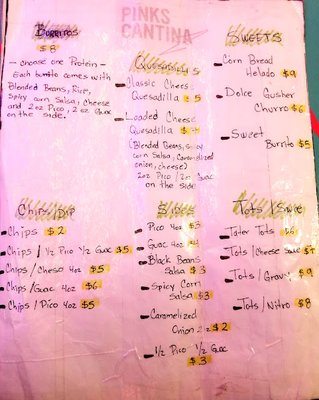 PINKS
CANTINA
Burritos
$8
- choose one Protein -
Each burrito comes with
Blended Beans, Rice,
Spicy corn Salsa, Cheese
and 2oz Pico, 2oz Guac
on the side.
Quesadillas
Classic Cheese
Quesadilla $5
Loaded Cheese
Quesadilla
(Blended Beans, Spicy
corn Salsa, Caramelized
onion, cheese)
2oz Pico / 2oz Guac
on the side
SWEETS
Corn Bread
Helado $9
Dolce Gusher
Churro $6
Sweet
Burrito $5
Chips/Dip
Chips $2
Chips / 1/2 Pico 1/2 Guac $5
Chips / Cheso 4oz $5
Chips / Guac 4oz $6
Chips / Pico 4oz $5
Sides
Pico 4oz $3
Guac 4oz $4
Black Beans
Salsa $3
Spicy Corn
Salsa $3
Caramelized
Onion 2oz $2
1/2 Pico 1/2 Guac
$3
Tots /
Tater Tots $6
Tots / Cheese Sauce
Tots / Gravy $9
Tots / Nitro $8